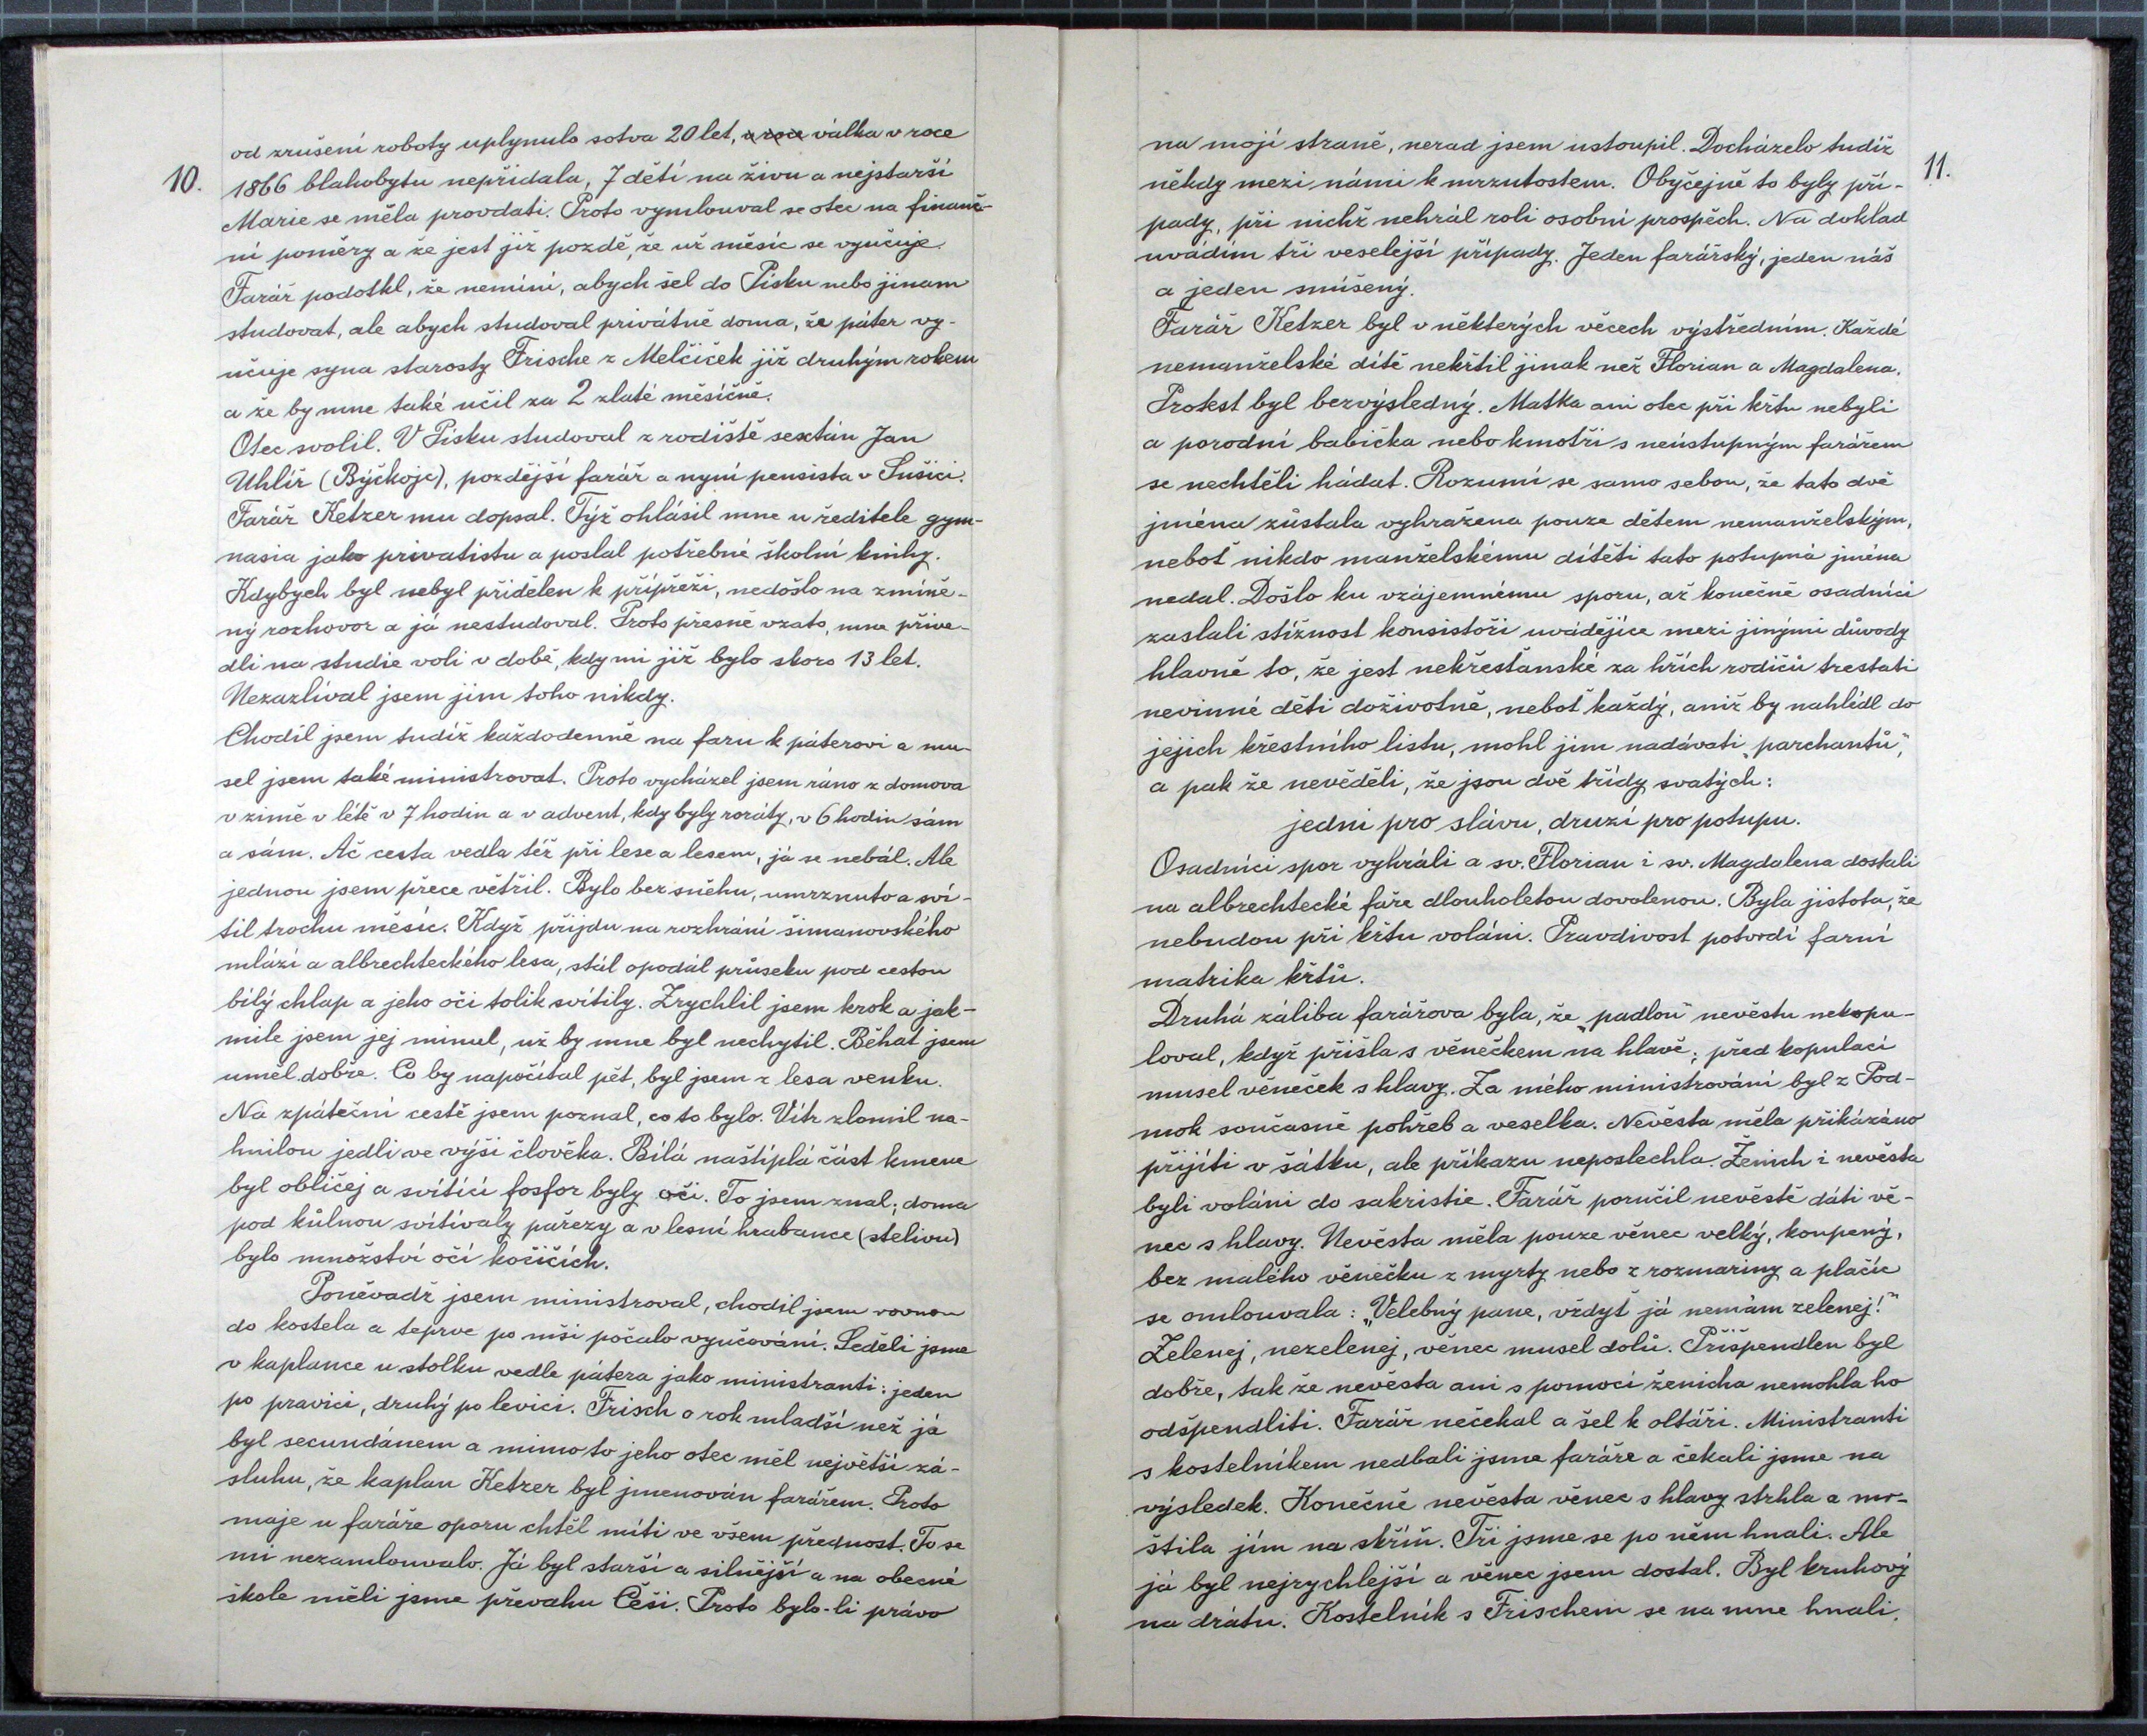 10.
od zrušení roboty uplynulo sotva 20 let, v roce válka v roce
1866 blahobytu nepřidala, 7 dětí na živu a nejstarší
Marie se měla provdati. Proto vymlouval se otec na finanč-
ní poměry a že jest již pozdě, že už měsíc se vyučuje.
Farář podotkl, že nemíní, abych šel do Písku nebo jinam
studovat, ale abych studoval privátně doma, že páter vy-
učuje syna starosty Frische z Melčiček již druhým rokem
a že by mne také učil za 2 zlaté měsíčně.
Otec svolil. V Písku studoval z rodiště sextán Jan
Uhlíř (Býčkojc), pozdější farář a nyní pensista v Sušici.
Farář Ketzer mu dopsal. Týž ohlásil mne u ředitele gym-
nasia jako privatistu a poslal potřebné školní knihy.
Kdybych byl nebyl přidělen k přípřeži, nedošlo na zmíně-
ný rozhovor a já nestudoval. Proto přesně vzato, mne přive-
dli na studie voli v době, kdy mi již bylo skoro 13 let.
Nezazlíval jsem jim toho nikdy.
Chodil jsem tudíž každodenně na faru k páterovi a mu-
sel jsem také ministrovat. Proto vycházel jsem ráno z domova
v zimě v létě v 7 hodin a v advent, kdy byly roráty, v 6 hodin sám
a sám. Ač cesta vedla též při lese a lesem, já se nebál. Ale
jednou jsem přece větřil. Bylo bez sněhu, umrznuto a sví-
til trochu měsíc. Když přijdu na rozhraní šimanovského
mlází a albrechteckého lesa, stál opodál průseku pod cestou
bílý chlap a jeho oči tolik svítily. Zrychlil jsem krok a jak-
mile jsem jej minul, už by mne byl nechytil. Běhat jsem
uměl dobře. Co by napočítal pět, byl jsem z lesa venku.
Na zpáteční cestě jsem poznal, co to bylo. Vítr zlomil na-
hnilou jedli ve výši člověka. Bílá naštíplá část kmene
byl obličej a svítící fosfor byly oči. To jsem znal; doma
pod kůlnou svítívaly pařezy a v lesní hrabance (stelivu)
bylo množství očí kočičích.
Poněvadž jsem ministroval, chodil jsem rovnou
do kostela a teprve po mši počalo vyučování. Seděli jsme
v kaplance u stolku vedle pátera jako ministranti: jeden
po pravici, druhý po levici. Frisch o rok mladší než já
byl secundánem a mimo to jeho otec měl největší zá-
sluhu, že kaplan Ketzer byl jmenován farářem. Proto
maje u faráře oporu chtěl míti ve všem přednost. To se
mi nezamlouvalo. Já byl starší a silnější a na obecné
škole měli jsme převahu Češi. Proto bylo-li právo
11.
na mojí straně, nerad jsem ustoupil. Docházelo tudíž
někdy mezi námi k mrzutostem. Obyčejně to byly pří-
pady, při nichž nehrál roli osobní prospěch. Na doklad
uvádím tři veselejší případy. Jeden farářský, jeden náš
a jeden smíšený.
Farář Ketzer byl v některých věcech výstředním. Každé
nemanželské dítě nekřtil jinak než Florian a Magdalena.
Protest byl bezvýsledný. Matka ani otec při křtu nebyli
a porodní babička nebo kmotři s neústupným farářem
se nechtěli hádat. Rozumí se samo sebou, že tato dvě
jména zůstala vyhražena pouze dětem nemanželským,
neboť nikdo manželskému dítěti tato potupná jména
nedal. Došlo ku vzájemnému sporu, až konečně osadníci
zaslali stížnost konsistoři uvádějíce mezi jinými důvody
hlavně to, že jest nekřesťanské za hřích rodičů trestati
nevinné děti doživotně, neboť každý, aniž by nahlédl do
jejich křestního listu, mohl jim nadávati „parchantů“,
a pak že nevěděli, že jsou dvě třídy svatých:
jedni pro slávu, druzí pro potupu.
Osadníci spor vyhráli a sv. Florian i sv. Magdalena dostali
na albrechtecké faře dlouholetou dovolenou. Byla jistota, že
nebudou při křtu voláni. Pravdivost potvrdí farní
matrika křtů.
Druhá záliba farářova byla, že „padlou“ nevěstu nekopu-
loval, když přišla s věnečkem na hlavě; před kopulací
musel věneček s hlavy. Za mého ministrování byl z Pod-
mok současně pohřeb a veselka. Nevěsta měla přikázáno
přijíti v šátku, ale příkazu neposlechla. Ženich i nevěsta
byli voláni do sakristie. Farář poručil nevěstě dáti vě-
nec s hlavy. Nevěsta měla pouze věnec velký, koupený,
bez malého věnečku z myrty nebo z rozmariny a plačíc
se omlouvala: „Velebný pane, vždyť já nemám zelenej!“
Zelenej, nezelenej, věnec musel dolů. Přišpendlen byl
dobře, tak že nevěsta ani s pomocí ženicha nemohla ho
odšpendliti. Farář nečekal a šel k oltáři. Ministranti
s kostelníkem nedbali jsme faráře a čekali jsme na
výsledek. Konečně nevěsta věnec s hlavy strhla a mr-
štila jím na skříň. Tři jsme se po něm hnali. Ale
já byl nejrychlejší a věnec jsem dostal. Byl kruhový
na drátu. Kostelník s Frischem se na mne hnali.